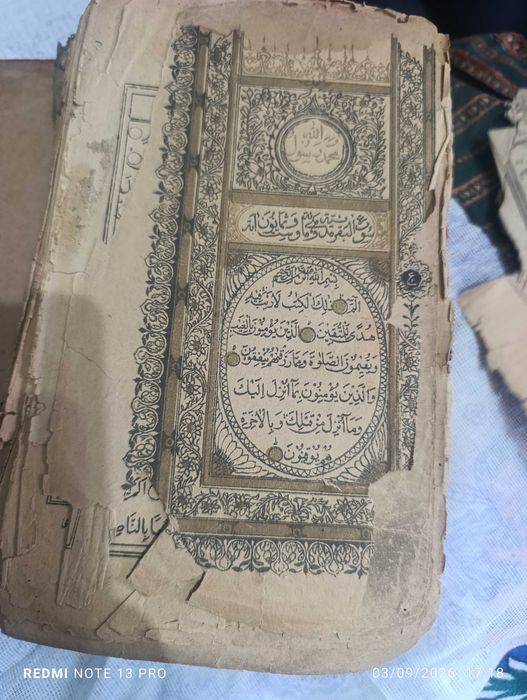 الله
محمد رسول
سورة البقرة مدنية وهي مائتان وست وثمانون آية
بسم الله الرحمن الرحيم
الٓمٓ ذٰلِكَ الْكِتٰبُ لَا رَيْبَ فِيْهِ
هُدًى لِّلْمُتَّقِيْنَ الَّذِيْنَ يُؤْمِنُوْنَ بِالْغَيْبِ
وَيُقِيْمُوْنَ الصَّلٰوةَ وَمِمَّا رَزَقْنٰهُمْ يُنْفِقُوْنَ
وَالَّذِيْنَ يُؤْمِنُوْنَ بِمَآ اُنْزِلَ اِلَيْكَ
وَمَآ اُنْزِلَ مِنْ قَبْلِكَ وَبِالْاٰخِرَةِ
هُمْ يُوْقِنُوْنَ
ع
بالنا
REDMI NOTE 13 PRO
03/09/2026 17:18